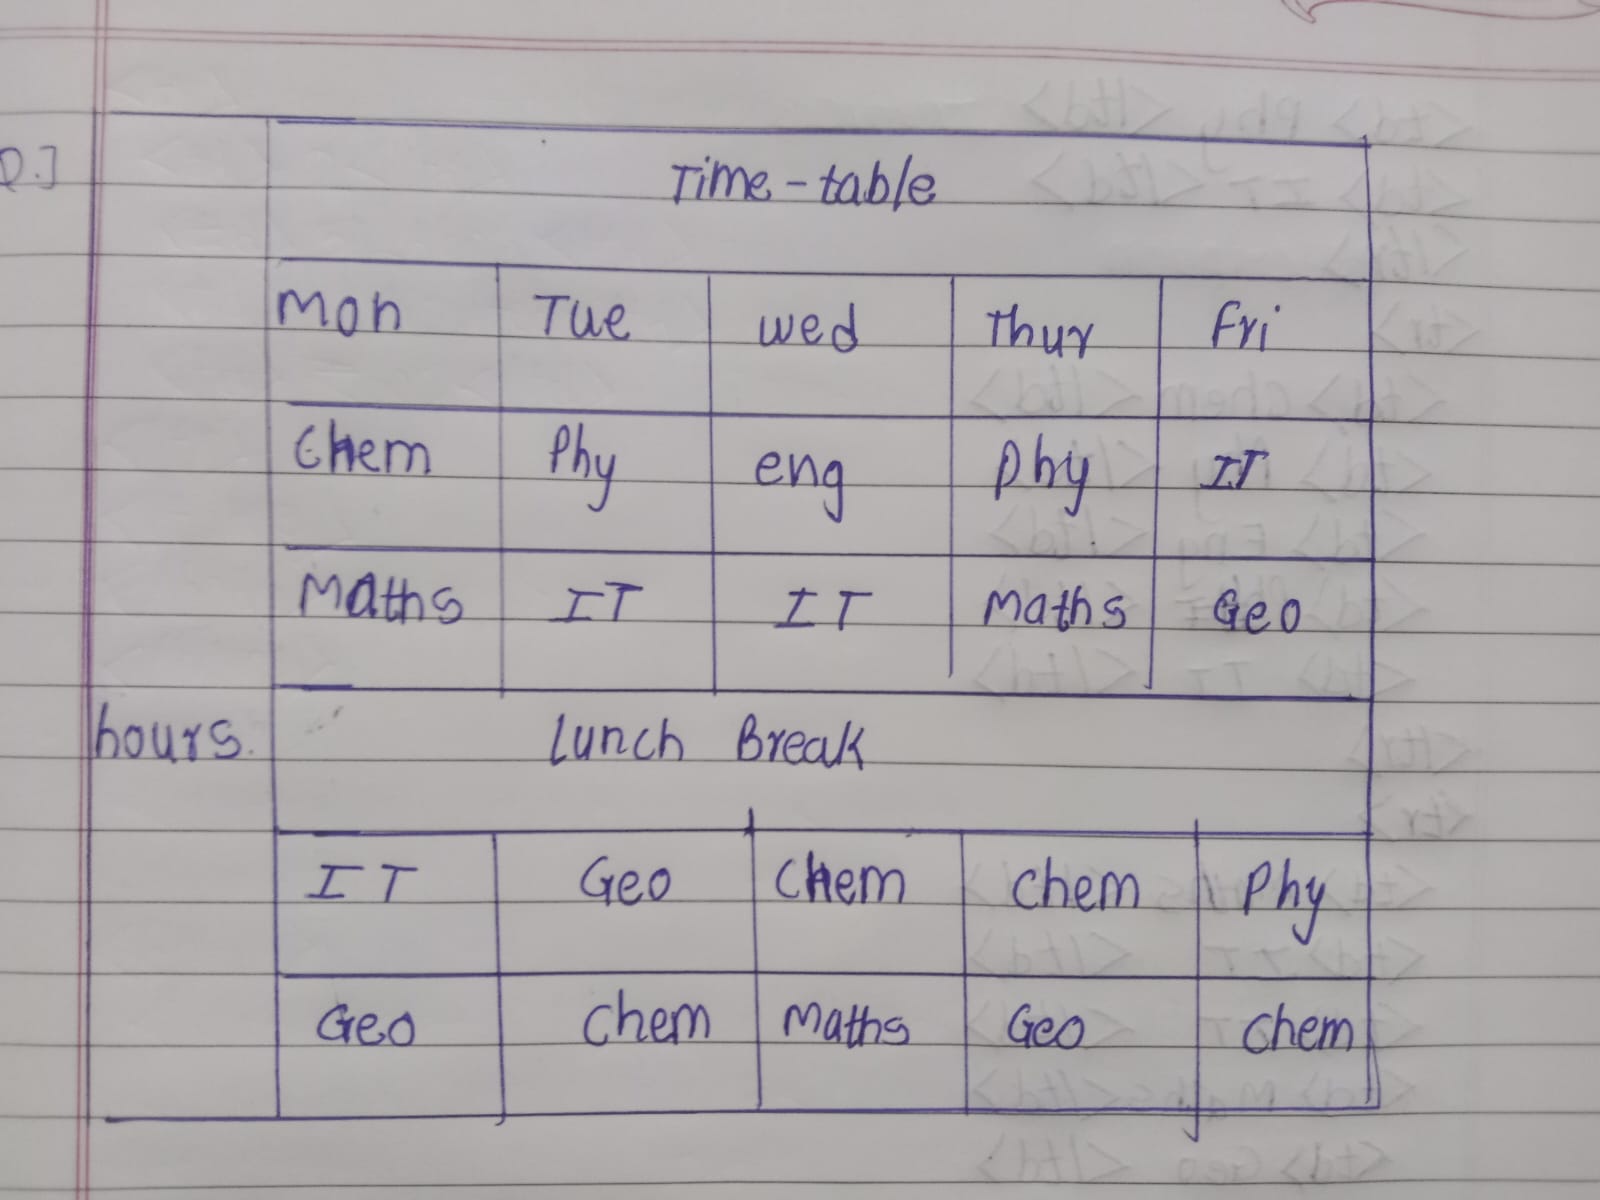 Q.]
Time-table
Mon Tue wed Thur Fri
Chem Phy eng Phy IT
Maths IT IT Maths Geo
hours. Lunch Break
IT Geo Chem Chem Phy
Geo Chem Maths Geo Chem